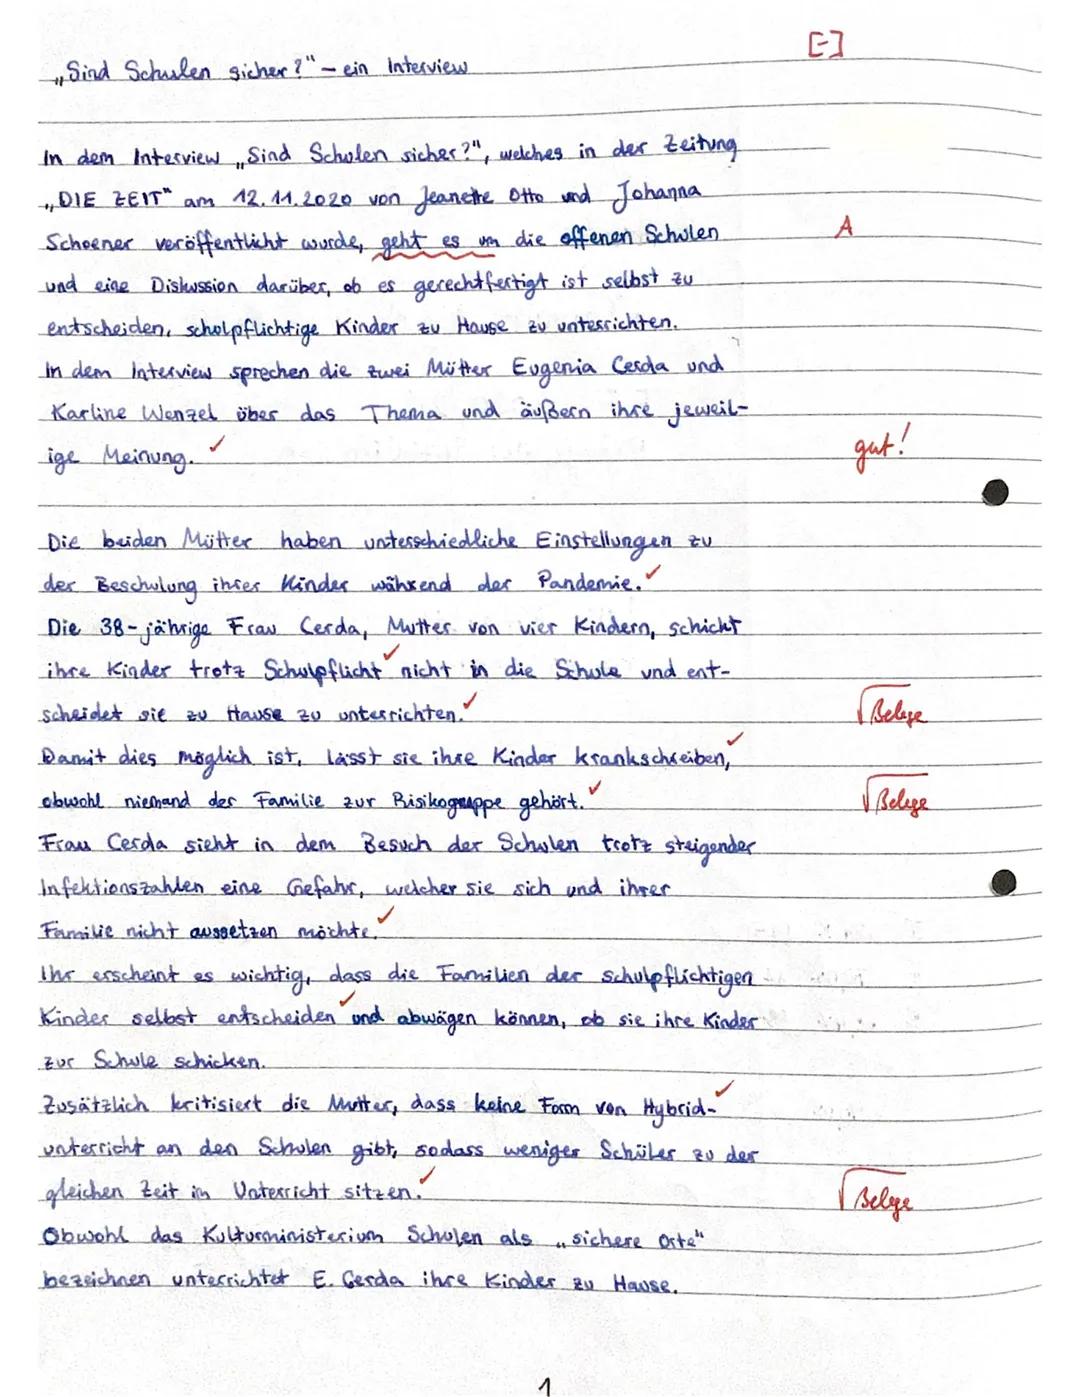 [-]
„Sind Schulen sicher?" – ein Interview
In dem Interview „Sind Schulen sicher?", welches in der Zeitung
„DIE ZEIT" am 12.11.2020 von Jeanette Otto und Johanna
Schoener veröffentlicht wurde, geht es um die offenen Schulen A
und eine Diskussion darüber, ob es gerechtfertigt ist selbst zu
entscheiden, schulpflichtige Kinder zu Hause zu unterrichten.
In dem Interview sprechen die zwei Mütter Eugenia Cerda und
Karline Wenzel über das Thema und äußern ihre jeweil-
ige Meinung. ✓ gut!
Die beiden Mütter haben unterschiedliche Einstellungen zu
der Beschulung ihrer Kinder während der Pandemie. ✓
Die 38-jährige Frau Cerda, Mutter von vier Kindern, schickt
ihre Kinder trotz Schulpflicht ✓ nicht in die Schule und ent-
scheidet sie zu Hause zu unterrichten. ✓ √Belege
Damit dies möglich ist, lässt sie ihre Kinder krankschreiben, ✓
obwohl niemand der Familie zur Risikogruppe gehört. ✓ √Belege
Frau Cerda sieht in dem Besuch der Schulen trotz steigender
Infektionszahlen eine Gefahr, welcher sie sich und ihrer
Familie nicht aussetzen möchte. ✓
Ihr erscheint es wichtig, dass die Familien der schulpflichtigen
Kinder selbst entscheiden ✓ und abwägen können, ob sie ihre Kinder
zur Schule schicken.
Zusätzlich kritisiert die Mutter, dass keine Form von Hybrid- ✓
unterricht an den Schulen gibt, sodass weniger Schüler zu der
gleichen Zeit im Unterricht sitzen. ✓ √Belege
Obwohl das Kulturministerium Schulen als „sichere Orte"
bezeichnen unterrichtet E. Cerda ihre Kinder zu Hause.
1